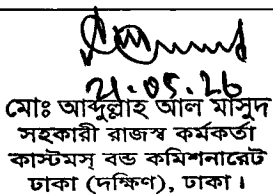 ২১.০৫.২৬
মোঃ আব্দুল্লাহ আল মাসুদ
সহকারী রাজস্ব কর্মকর্তা
কাস্টমস্ বন্ড কমিশনারেট
ঢাকা (দক্ষিণ), ঢাকা।